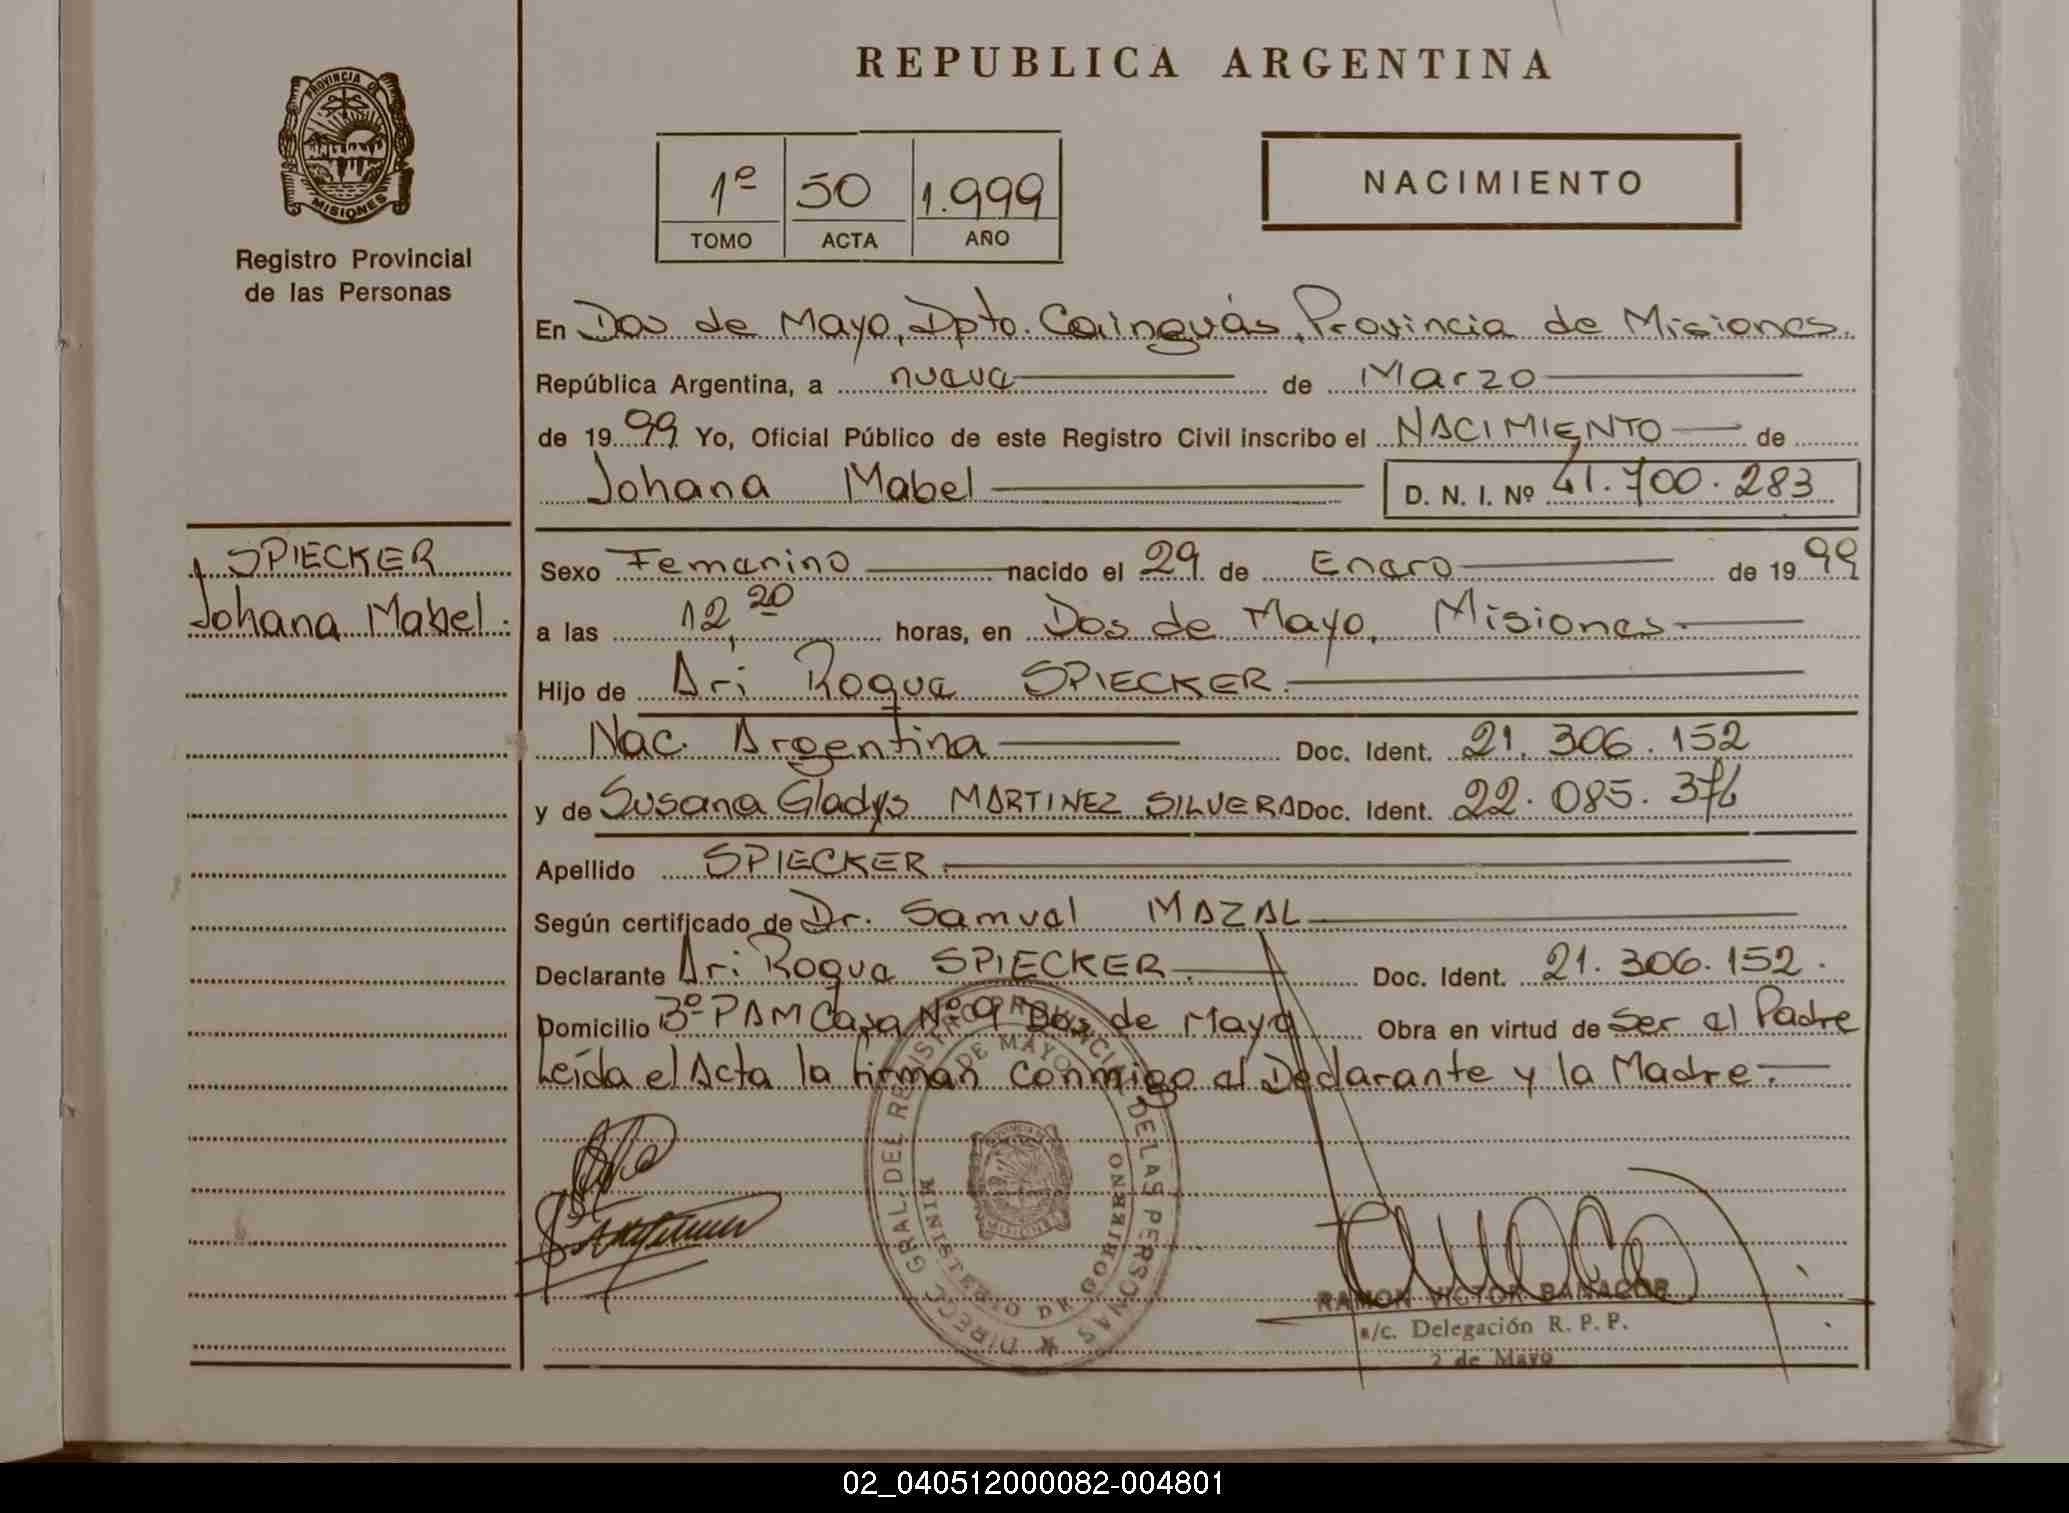 REPUBLICA ARGENTINA
PROVINCIA DE
MISIONES
Registro Provincial
de las Personas
1º 50 1.999
TOMO ACTA AÑO
NACIMIENTO
En Dos de Mayo, Dpto. Cainguás, Provincia de Misiones.
República Argentina, a nueve de Marzo
de 1999 Yo, Oficial Público de este Registro Civil inscribo el NACIMIENTO de
Johana Mabel D. N. I. Nº 41.700.283
SPIECKER
Johana Mabel.
Sexo Femenino nacido el 29 de Enero de 1999
a las 12,20 horas, en Dos de Mayo, Misiones
Hijo de Ari Roque SPIECKER
Nac. Argentina Doc. Ident. 21.306.152
y de Susana Gladys MARTINEZ SILVERA Doc. Ident. 22.085.376
Apellido SPIECKER
Según certificado de Dr. Samuel MAZAL
Declarante Ari Roque SPIECKER. Doc. Ident. 21.306.152.
Domicilio 3º PAM Casa Nº 9 Dos de Mayo Obra en virtud de Ser el Padre
Leída el Acta la firman conmigo el Declarante y la Madre.
DIRECC GRAL DEL REGISTRO PROVINCIAL DE LAS PERSONAS
DE MAYO
MINISTERIO DE GOBIERNO
RAMON VICTOR BANACOR
a/c. Delegación R. P. P.
2 de Mayo
02_040512000082-004801